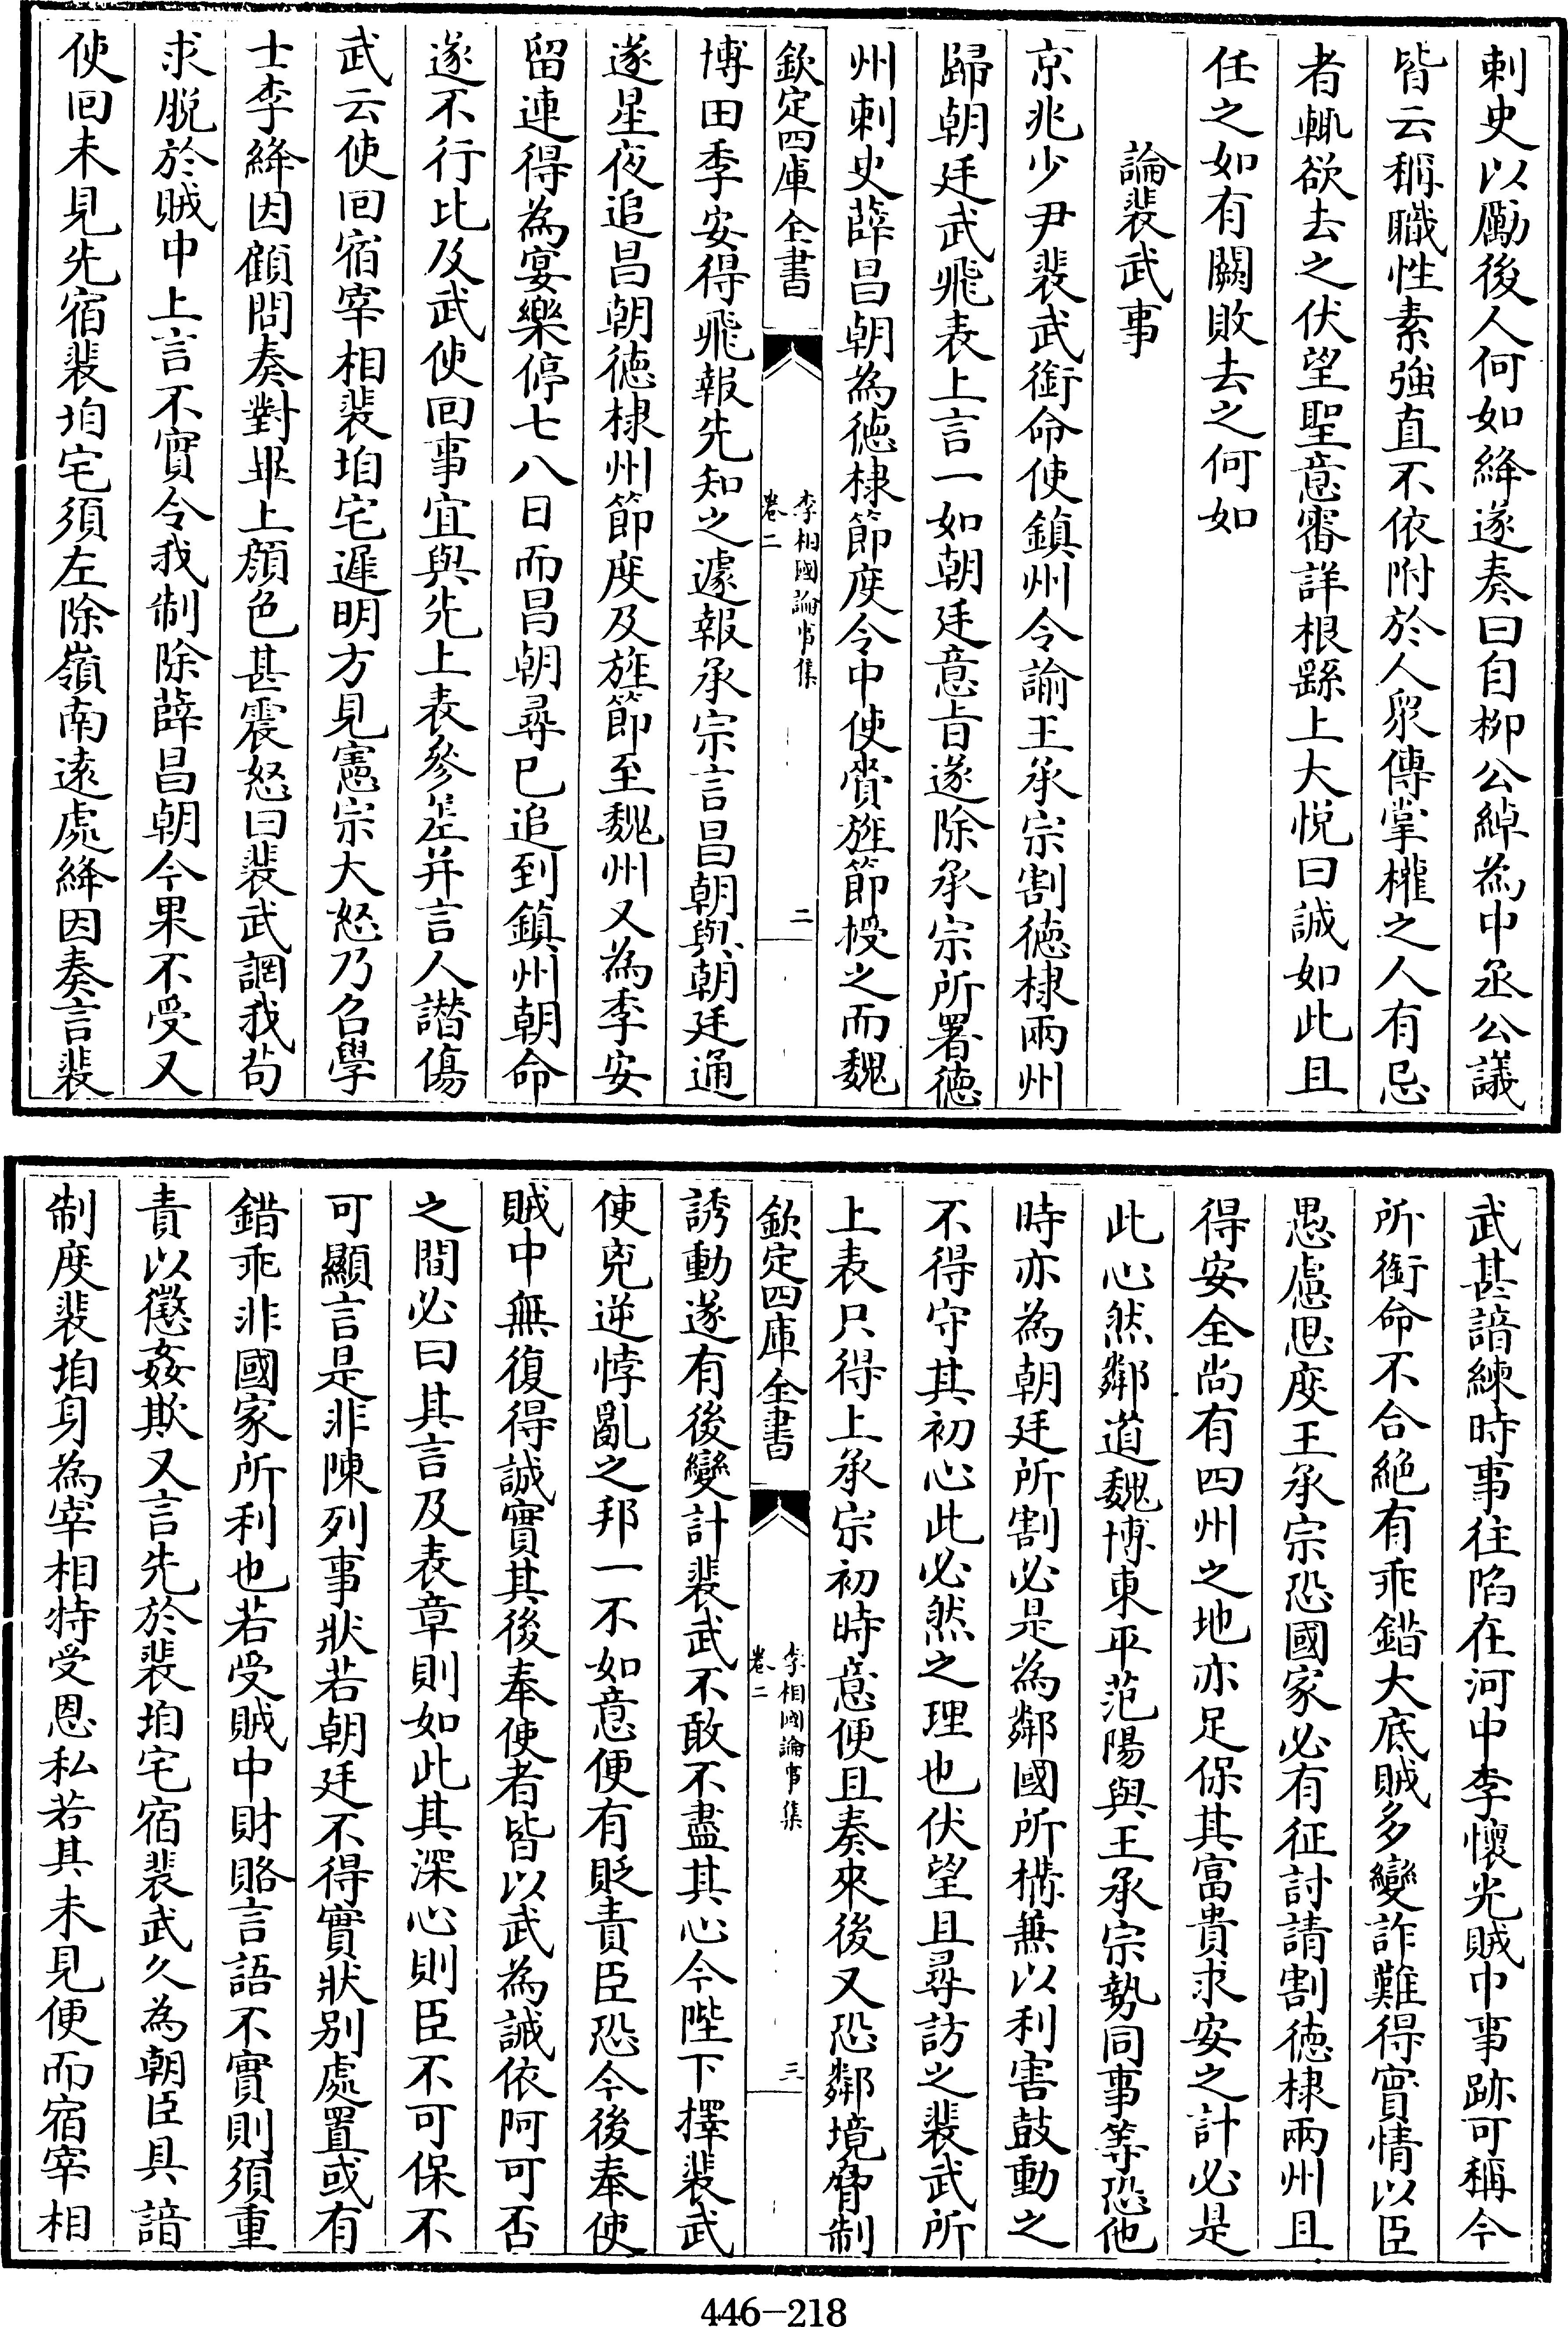 刺史以勵後人何如絳遂奏曰自柳公綽為中丞公議
皆云稱職性素強直不依附於人衆傳掌權之人有忌
者輒欲去之伏望聖意審詳根繇上大悅曰誠如此且
任之如有闕敗去之何如
論裴武事
京兆少尹裴武銜命使鎮州令諭王承宗割德棣兩州
歸朝廷武飛表上言一如朝廷意旨遂除承宗所署德
州刺史薛昌朝為德棣節度令中使賫旌節授之而魏
欽定四庫全書
李相國論事集
卷二
二
博田季安得飛報先知之遽報承宗言昌朝與朝廷通
遂星夜追昌朝德棣州節度及旌節至魏州又為季安
留連得為宴樂停七八日而昌朝尋已追到鎮州朝命
遂不行比及武使回事宜與先上表參差并言人譖傷
武云使回宿宰相裴垍宅遲明方見憲宗大怒乃召學
士李絳因顧問奏對畢上顏色甚震怒曰裴武誷我茍
求脫於賊中上言不實令我制除薛昌朝今果不受又
使回未見先宿裴垍宅須左除嶺南遠處絳因奏言裴
武甚諳練時事往陷在河中李懷光賊中事跡可稱今
所銜命不合絕有乖錯大底賊多變詐難得實情以臣
愚慮思度王承宗恐國家必有征討請割德棣兩州且
得安全尚有四州之地亦足保其富貴求安之計必是
此心然鄰道魏博東平范陽與王承宗勢同事等恐他
時亦為朝廷所割必是為鄰國所搆兼以利害鼓動之
不得守其初心此必然之理也伏望且尋訪之裴武所
上表只得上承宗初時意便且奏來後又恐鄰境脅制
欽定四庫全書
李相國論事集
卷二
三
誘動遂有後變計裴武不敢不盡其心今陛下擇裴武
使兇逆悖亂之邦一不如意便有貶責臣恐今後奉使
賊中無復得誠實其後奉使者皆以武為誡依阿可否
之間必曰其言及表章則如此其深心則臣不可保不
可顯言是非陳列事狀若朝廷不得實狀别處置或有
錯乖非國家所利也若受賊中財賂言語不實則須重
責以懲姦欺又言先於裴垍宅宿裴武久為朝臣具諳
制度裴垍身為宰相特受恩私若其未見便而宿宰相
446-218